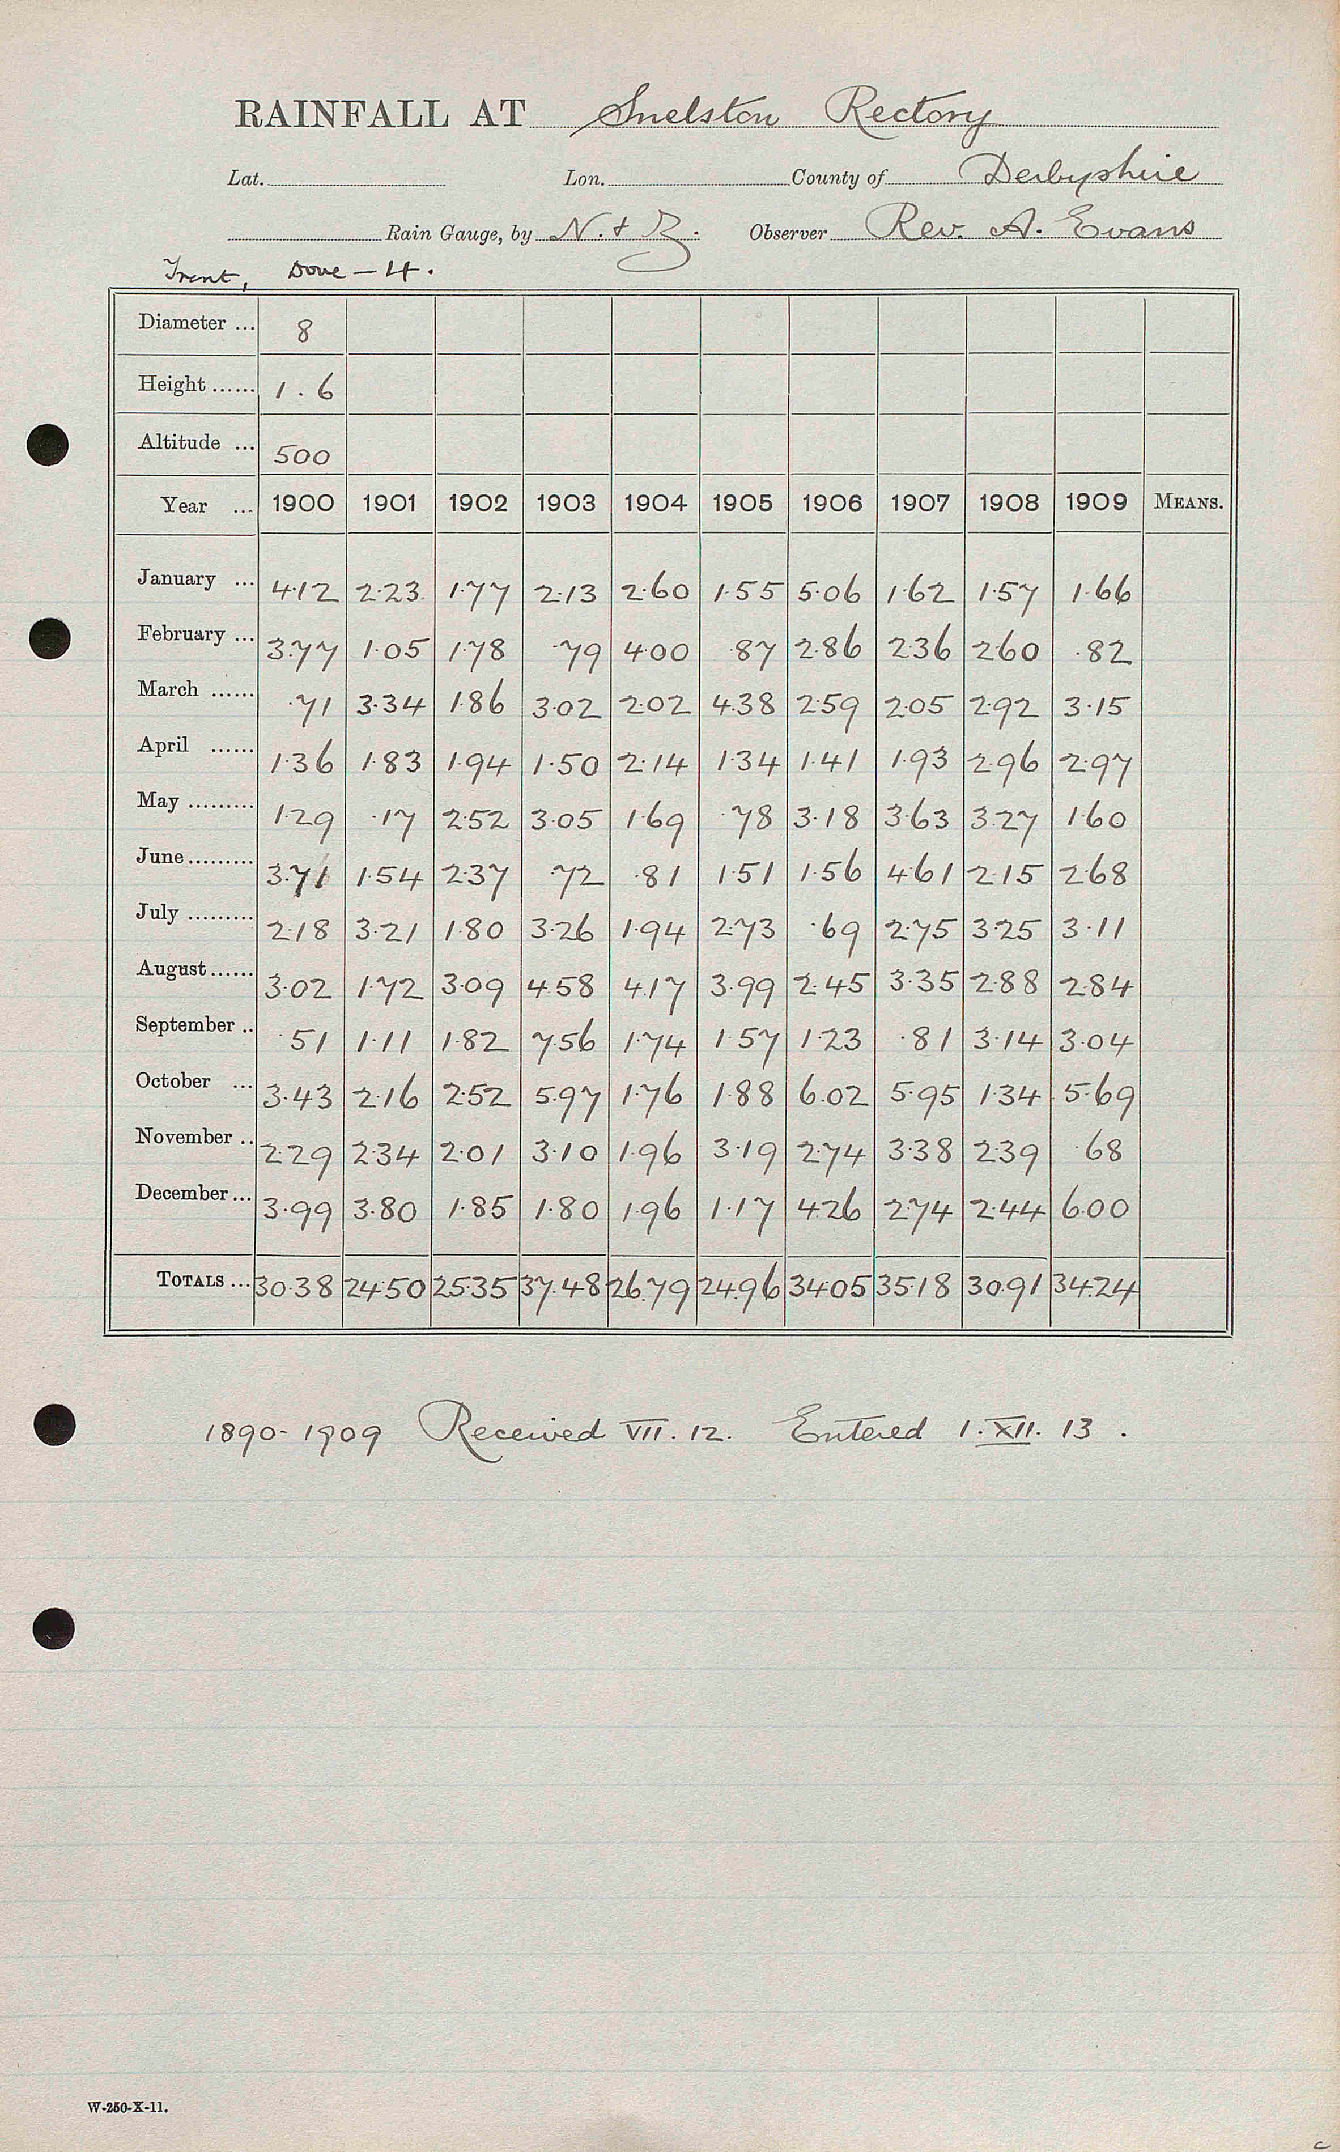 RAINFALL AT Snelston Rectory
Lat. Lon. County of Derbyshire
Rain Gauge, by N. & Z. Observer Rev. A. Evans
Trent, Dove - 4.
Diameter ... 8
Height ...... 1.6
Altitude ... 500
Year ... 1900 1901 1902 1903 1904 1905 1906 1907 1908 1909 MEANS.
January ... 4.12 2.23 1.77 2.13 2.60 1.55 5.06 1.62 1.57 1.66
February ... 3.77 1.05 1.78 .79 4.00 .87 2.86 2.36 2.60 .82
March ...... .71 3.34 1.86 3.02 2.02 4.38 2.59 2.05 2.92 3.15
April ...... 1.36 1.83 1.94 1.50 2.14 1.34 1.41 1.93 2.96 2.97
May ......... 1.29 .17 2.52 3.05 1.69 .78 3.18 3.63 3.27 1.60
June ......... 3.71 1.54 2.37 .72 .81 1.51 1.56 4.61 2.15 2.68
July ......... 2.18 3.21 1.80 3.26 1.94 2.73 .69 2.75 3.25 3.11
August ...... 3.02 1.72 3.09 4.58 4.17 3.99 2.45 3.35 2.88 2.84
September .. .51 1.11 1.82 7.56 1.74 1.57 1.23 .81 3.14 3.04
October ... 3.43 2.16 2.52 5.97 1.76 1.88 6.02 5.95 1.34 5.69
November .. 2.29 2.34 2.01 3.10 1.96 3.19 2.74 3.38 2.39 .68
December ... 3.99 3.80 1.85 1.80 1.96 1.17 4.26 2.74 2.44 6.00
TOTALS ... 30.38 24.50 25.35 37.48 26.79 24.96 34.05 35.18 30.91 34.24
1890-1909 Received VII. 12. Entered 1. XII. 13.
W-250-X-11.